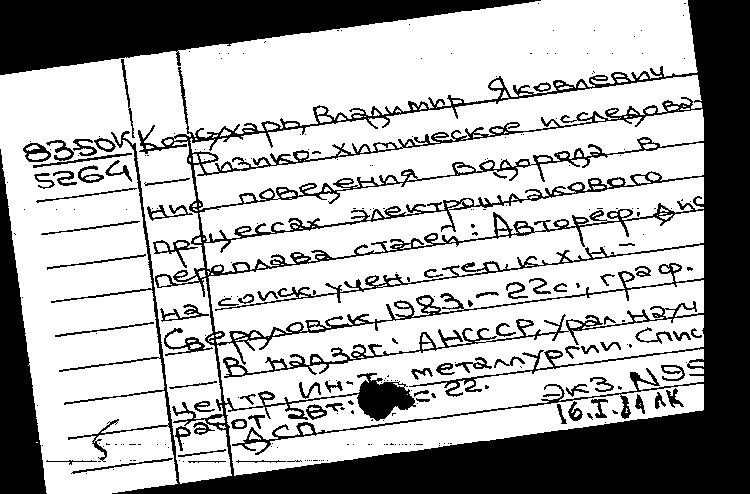 8350К Кожухарь, Владимир Яковлевич.
5264 Физико-химическое исследова-
ние поведения водорода в
процессах электрошлакового
переплава сталей: Автореф. дис
на соиск. учен. степ. к. х. н. –
Свердловск, 1983. – 22с., граф.
В надзаг.: АНСССР, Урал. науч
центр, Ин-т металлургии. Спис
работ авт.: с. 22.
ДСП. Экз. N95
16.I.84 ЛК